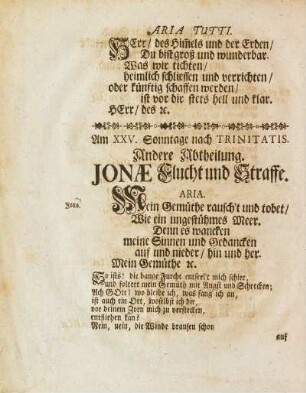 ARIA TUTTI.
HErr/ des Him̃els und der Erden/
Du bist groß und wunderbar.
Was wir tichten/
heimlich schliessen und verrichten/
oder künftig schaffen werden/
ist vor dir stets hell und klar.
HErr/ des ꝛc.
Am XXV. Sonntage nach TRINITATIS.
Andere Abtheilung.
JONÆ Flucht und Straffe.
ARIA.
Jona.
Mein Gemüthe rausch't und tobet/
Wie ein ungestühmes Meer.
Denn es wancken
meine Sinnen und Gedancken
auf und nieder/ hin und her.
Mein Gemüthe ꝛc.
So ists! die bange Furcht entseel't mich schier,
und foltert mein Gemüth mit Angst und Schrecken;
Ach GOtt! wo bleibe ich, was fang' ich an,
ist auch ein Ort, woselbst ich dir,
vor deinem Zorn mich zu verstecken,
entfliehen kan?
Nein, nein, die Winde brausen schon
auf